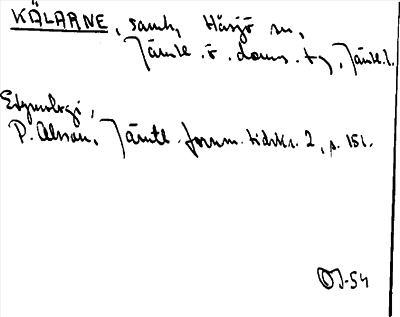 KÄLARNE, samh, Hässjö sn,
Jämtl. ö. doms. t., Jämtl. l.
Etymologi,
P. Olsson, Jämtl. fornm. tidskr. 2, s. 151.
OJ-54